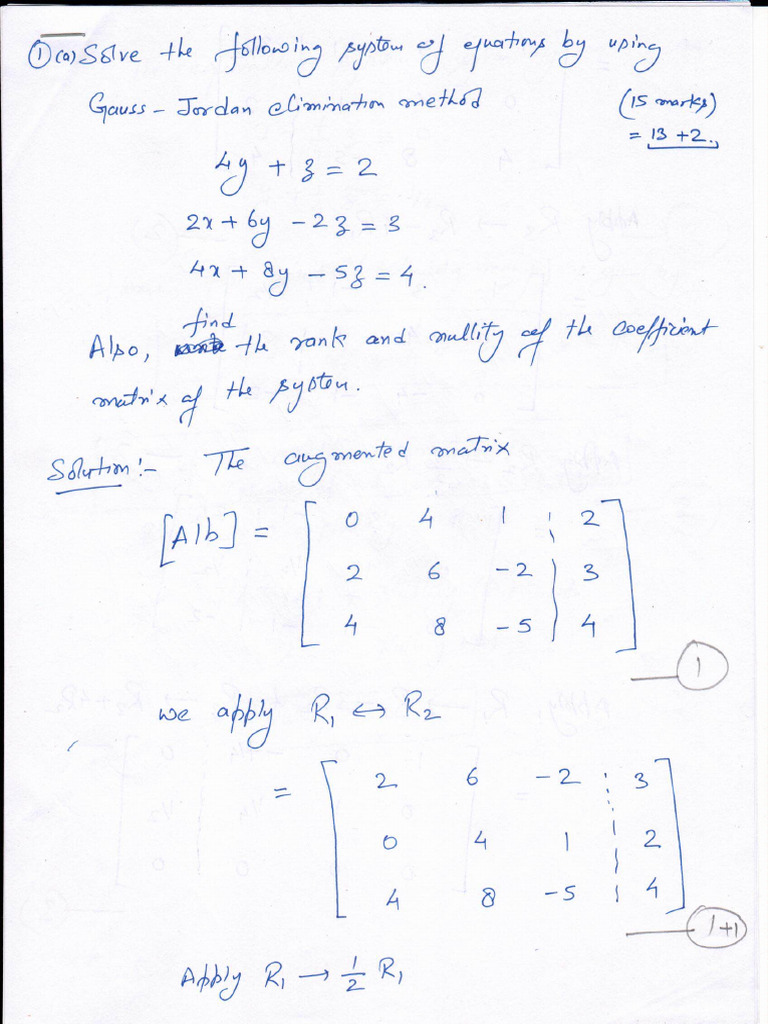 ① (a) Solve the following system of equations by using
Gauss - Jordan elimination method (15 marks)
= 13 + 2.
4y + z = 2
2x + 6y - 2z = 3
4x + 8y - 5z = 4.
find
Also, the rank and nullity of the coefficient
matrix of the system.
Solution :- The augmented matrix
[A|b] = [ 0 4 1 ¦ 2 ]
2 6 -2 | 3
4 8 -5 | 4
1
we apply R1 ↔ R2
= [ 2 6 -2 ¦ 3 ]
0 4 1 ¦ 2
4 8 -5 ¦ 4
1+1
Apply R1 → 1/2 R1